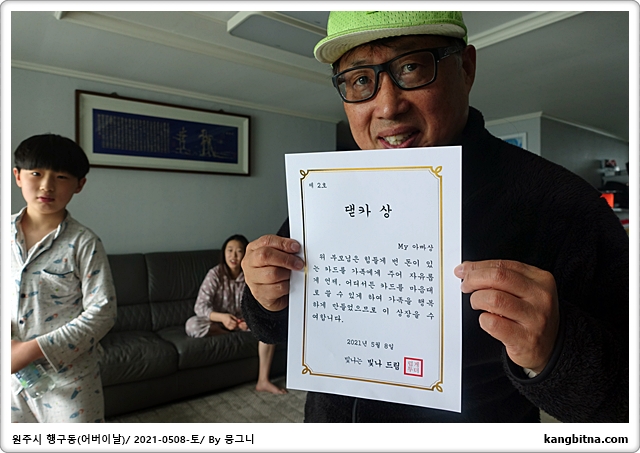 제 2호
댇카 상
My 아빠상
위 부모님은 힘들게 번 돈이 있
는 카드를 가족에게 주어 자유롭
게 언제, 어디서든 카드를 마음대
로 쓸 수 있게 하여 가족을 행복
하게 만들었으므로 이 상장을 수
여합니다.
2021년 5월 8일
빛나는 빛나 드림
원주시 행구동(어버이날)/ 2021-0508-토/ By 뭉그니
kangbitna.com